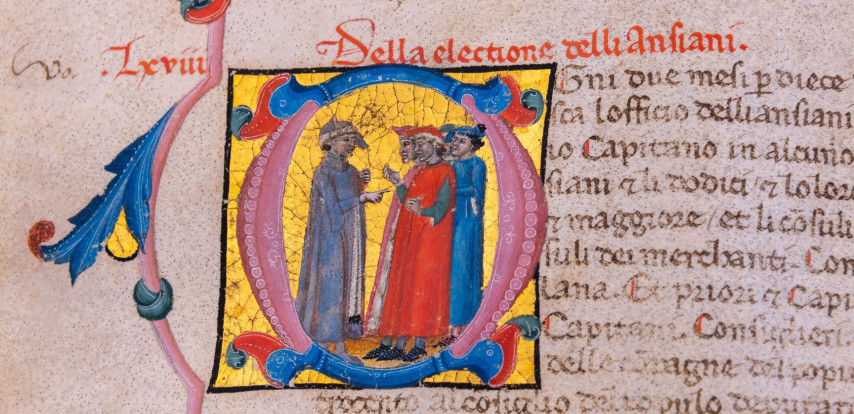 .Lxviii Della electione delli Ansiani.
Ogni due mesi p diece
sca lofficio delli ansiani
io Capitano in alcuno
siani & li dodici / & loloro
& maggiore / et li cōsuli
suli dei merchanti. Con
iana. Et priori & Capi
Capitani. Consiglieri.
delle cōpagne del popu
trocento al cōsiglio del populo